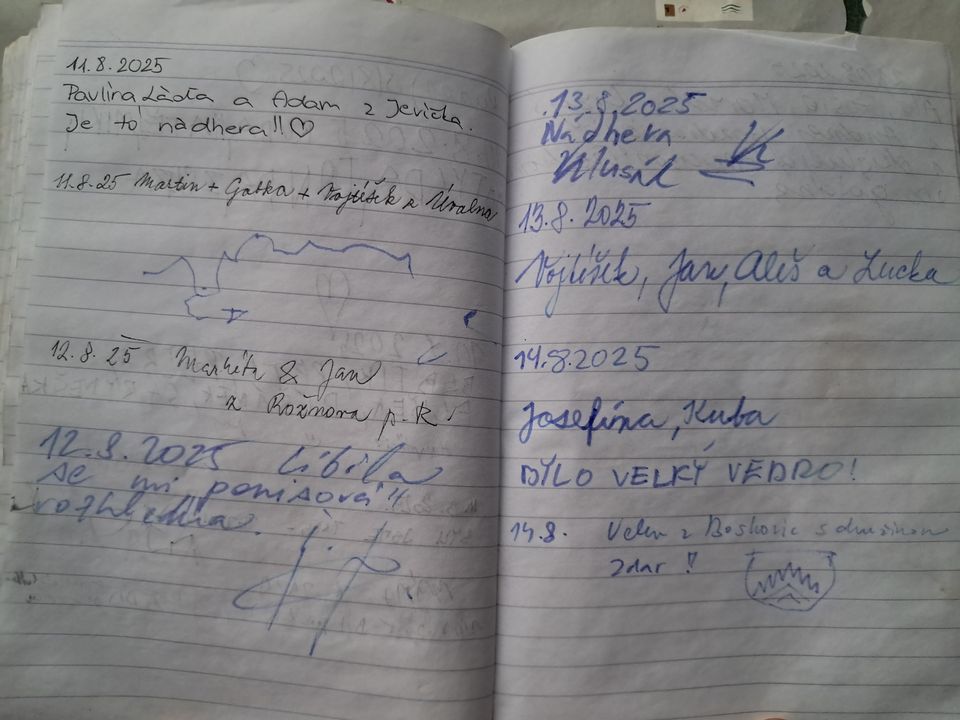 11.8.2025
Pavlína Láďa a Adam z Jevíčka.
Je to nádhera!! ♡
11.8.25 Martin + Gabka + Vojtíšek z Úvalna
12.8.25 Markéta & Jan
z Rožnova p. R.
12.8.2025 Líbila
se mi
rozhledna.
13.8.2025
Nádhera
Klusák
13.8.2025
Vojtíšek, Jan, Aleš a Lucka
14.8.2025
Josefína, Kuba
BYLO VELKÝ VEDRO!
14.8. z Boskovic s družinou
zdar!